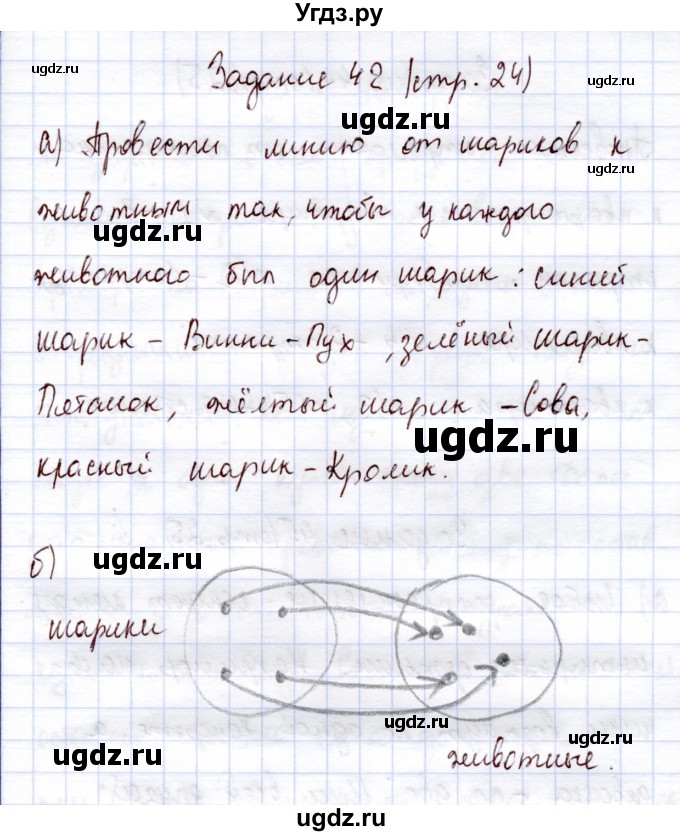 Угдз.ру
Задание 42 (стр. 24)
а) Провести линию от шариков к
животным так, чтобы у каждого
животного был один шарик: синий
шарик – Винни-Пух, зелёный шарик-
Пятачок, жёлтый шарик – Сова,
красный шарик – Кролик.
б)
шарики
животные.
ugdz.ru
ugdz.ru
ugdz.ru
ugdz.ru
ugdz.ru
ugdz.ru
ugdz.ru
ugdz.ru
ugdz.ru
ugdz.ru
ugdz.ru
ugdz.ru